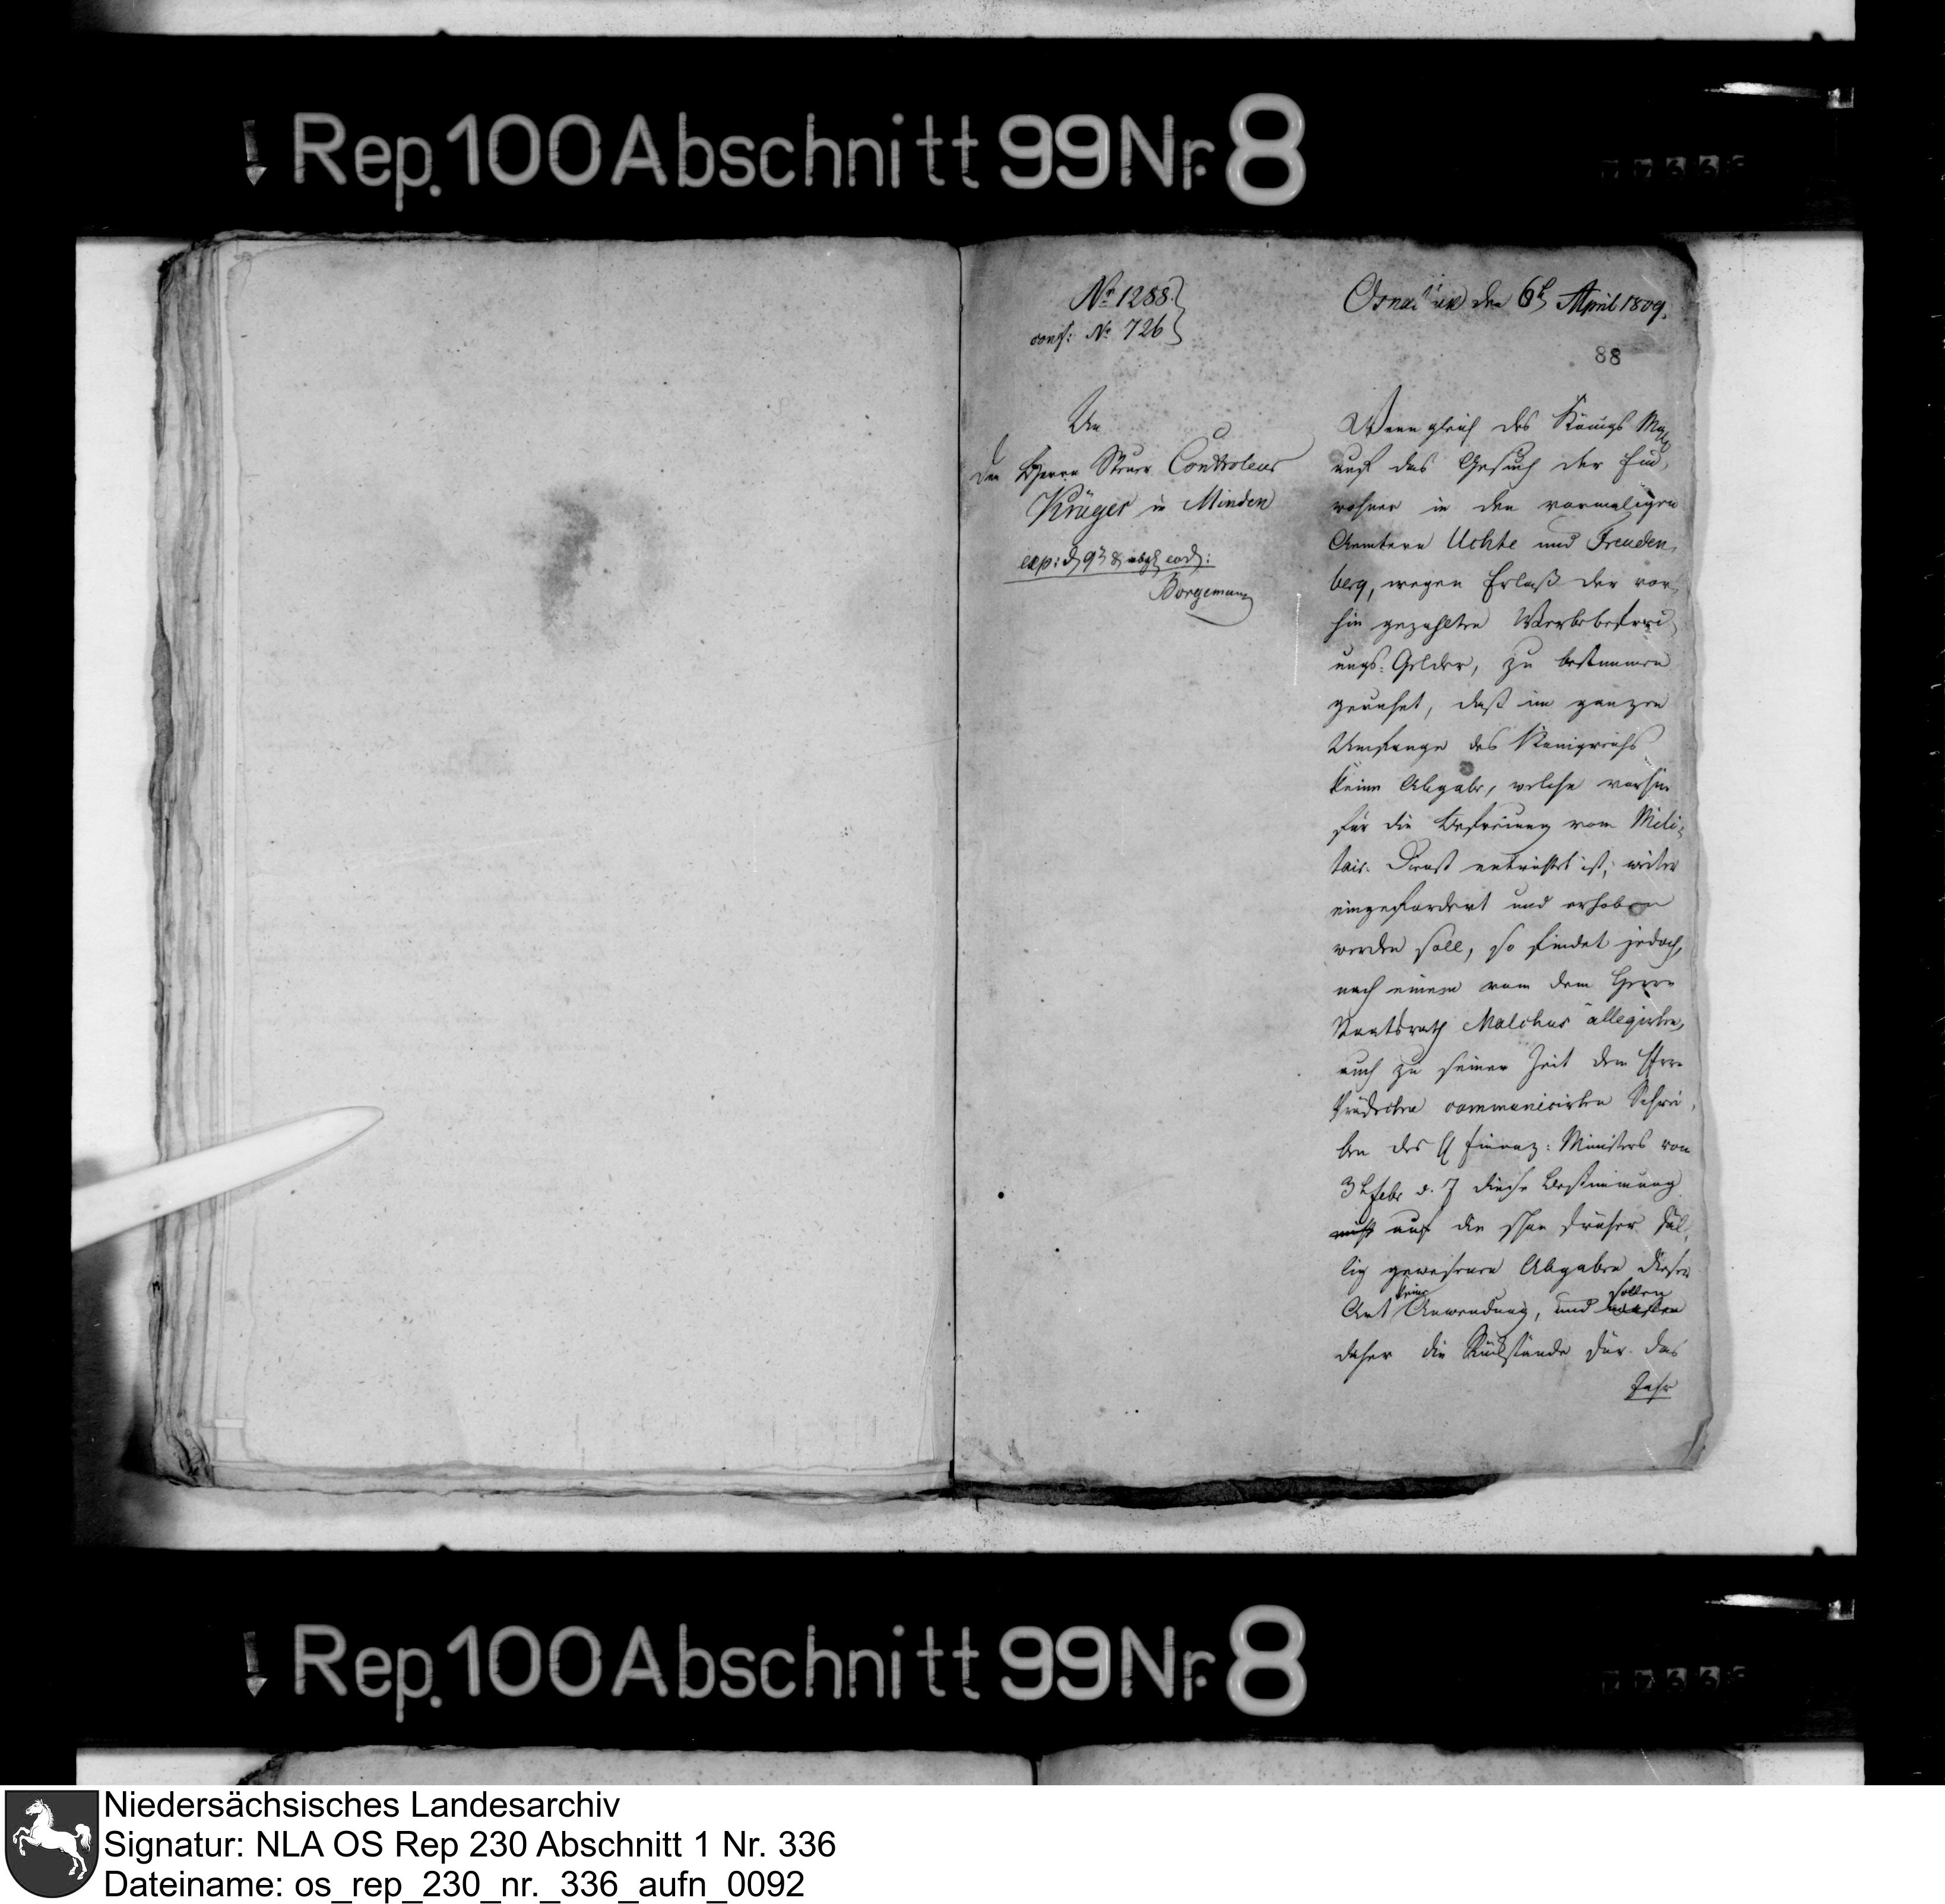 Rep. 100 Abschnitt 99 Nr. 8
No 1288.
conf: No 726
Osnabrück den 6t April 1809.
88
An
den Herrn Steuer Controleur
Krüger in Minden
exp: d 9t & abgeg eod:
Borgemann
Wenn gleich des Königs Maj.
auf das Gesuch der Ein,
wohner in den vormaligen
Aemtern Uchte und Freuden,
berg, wegen Erlaß der vor,
hin gezahlten Werbebefrei,
ungs-Gelder, zu bestimmen
geruhet, daß im ganzen
Umfange des Königreichs
keine Abgabe, welche vorhin
für die Befreiung vom Mili,
tair-Dienst entrichtet ist, weiter
eingefordert und erhoben
werden soll, so findet jedoch,
nach einem von dem Herrn
Staatsrath Malchus allegirten,
auch zu seiner Zeit dem Herrn
Präfecten communicirten Schrei,
ben des H Finanz-Ministers vom
3t Febr d. J diese Bestimmung
nicht auf die schon früher fäl,
lig gewesenen Abgaben dieser
Art keine Anwendung, und sollen
daher die Rückstände für das
Jahr
Rep. 100 Abschnitt 99 Nr. 8
Niedersächsisches Landesarchiv
Signatur: NLA OS Rep 230 Abschnitt 1 Nr. 336
Dateiname: os_rep_230_nr._336_aufn_0092